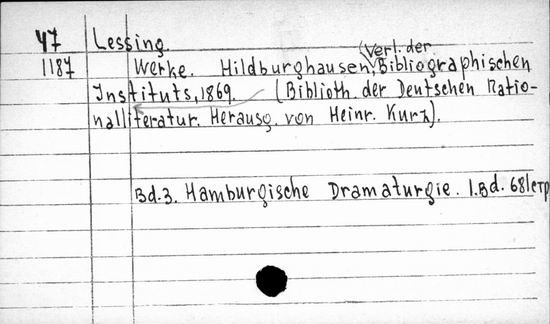 У7 Lessing.
1187 Werke. Hildburghausen, (Verl. der Bibliographischen
Instituts, 1869. (Biblioth. der Deutschen Natio-
nalliteratur. Herausg. von Heinr. Kurz).
Bd.3. Hamburgische Dramaturgie. 1.Bd. 681стр